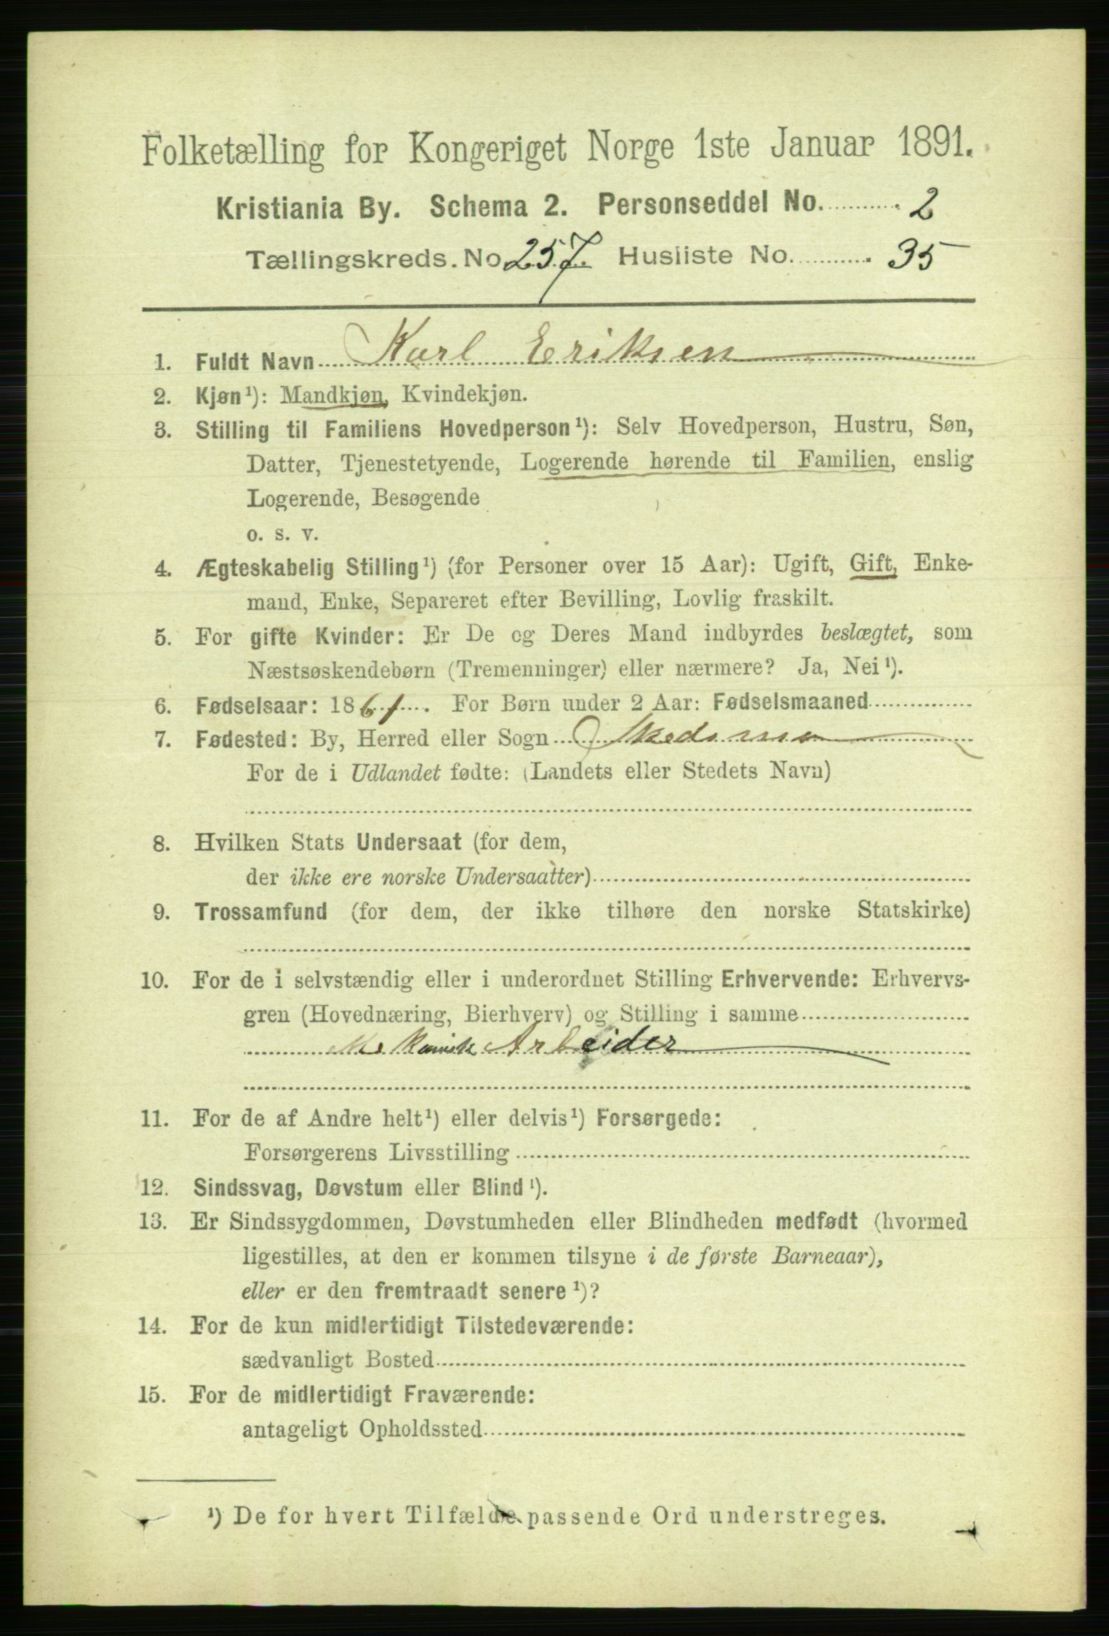 Folketælling for Kongeriget Norge 1ste Januar 1891.
Kristiania By. Schema 2. Personseddel No. 2
Tællingskreds. No 257 Husliste No. 35
1. Fuldt Navn Karl Eriksen
2. Kjøn¹): Mandkjøn, Kvindekjøn.
3. Stilling til Familiens Hovedperson¹): Selv Hovedperson, Hustru, Søn,
Datter, Tjenestetyende, Logerende hørende til Familien, enslig
Logerende, Besøgende
o. s. v.
4. Ægteskabelig Stilling¹) (for Personer over 15 Aar): Ugift, Gift, Enke-
mand, Enke, Separeret efter Bevilling, Lovlig fraskilt.
5. For gifte Kvinder: Er De og Deres Mand indbyrdes beslægtet, som
Næstsøskendebørn (Tremenninger) eller nærmere? Ja, Nei¹).
6. Fødselsaar: 1861. For Børn under 2 Aar: Fødselsmaaned
7. Fødested: By, Herred eller Sogn Skedsmo
For de i Udlandet fødte: (Landets eller Stedets Navn)
8. Hvilken Stats Undersaat (for dem,
der ikke ere norske Undersaatter)
9. Trossamfund (for dem, der ikke tilhøre den norske Statskirke)
10. For de i selvstændig eller i underordnet Stilling Erhvervende: Erhvervs-
gren (Hovednæring, Bierhverv) og Stilling i samme
Mekanisk Arbeider
11. For de af Andre helt¹) eller delvis¹) Forsørgede:
Forsørgerens Livsstilling
12. Sindssvag, Døvstum eller Blind¹).
13. Er Sindssygdommen, Døvstumheden eller Blindheden medfødt (hvormed
ligestilles, at den er kommen tilsyne i de første Barneaar),
eller er den fremtraadt senere¹)?
14. For de kun midlertidigt Tilstedeværende:
sædvanligt Bosted
15. For de midlertidigt Fraværende:
antageligt Opholdssted
¹) De for hvert Tilfælde passende Ord understreges.